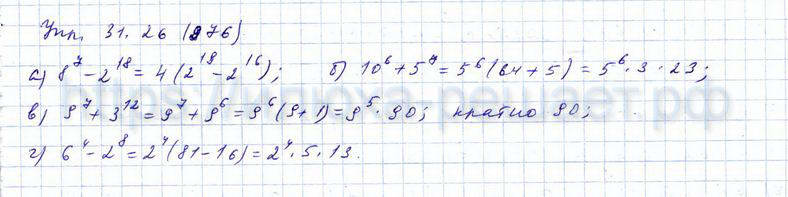 Упр. 31.26 (976).
а) 8⁷ - 2¹⁸ = 4 (2¹⁹ - 2¹⁶); б) 10⁶ + 5⁷ = 5⁶ (64 + 5) = 5⁶ · 3 · 23;
в) 9⁷ + 3¹² = 9⁷ + 9⁶ = 9⁶ (9 + 1) = 9⁵ · 90; кратно 90;
г) 6⁴ - 2⁸ = 2⁴ (81 - 16) = 2⁴ · 5 · 13.